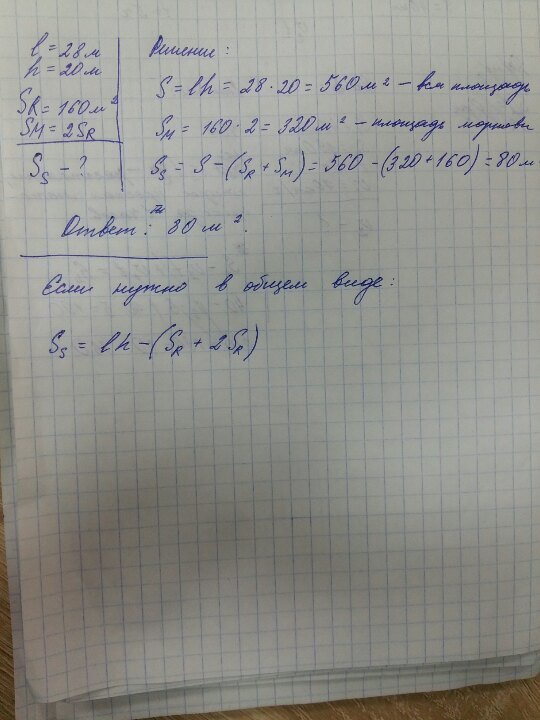 l = 28 м
h = 20 м
SR = 160 м²
SM = 2SR
Ss - ?
Решение:
S = lh = 28 · 20 = 560 м² – вся площадь
SM = 160 · 2 = 320 м² – площадь моркови
Ss = S – (SR + SM) = 560 – (320 + 160) = 80 м
Ответ: 80 м².
Если нужно в общем виде:
Ss = lh – (SR + 2SR)